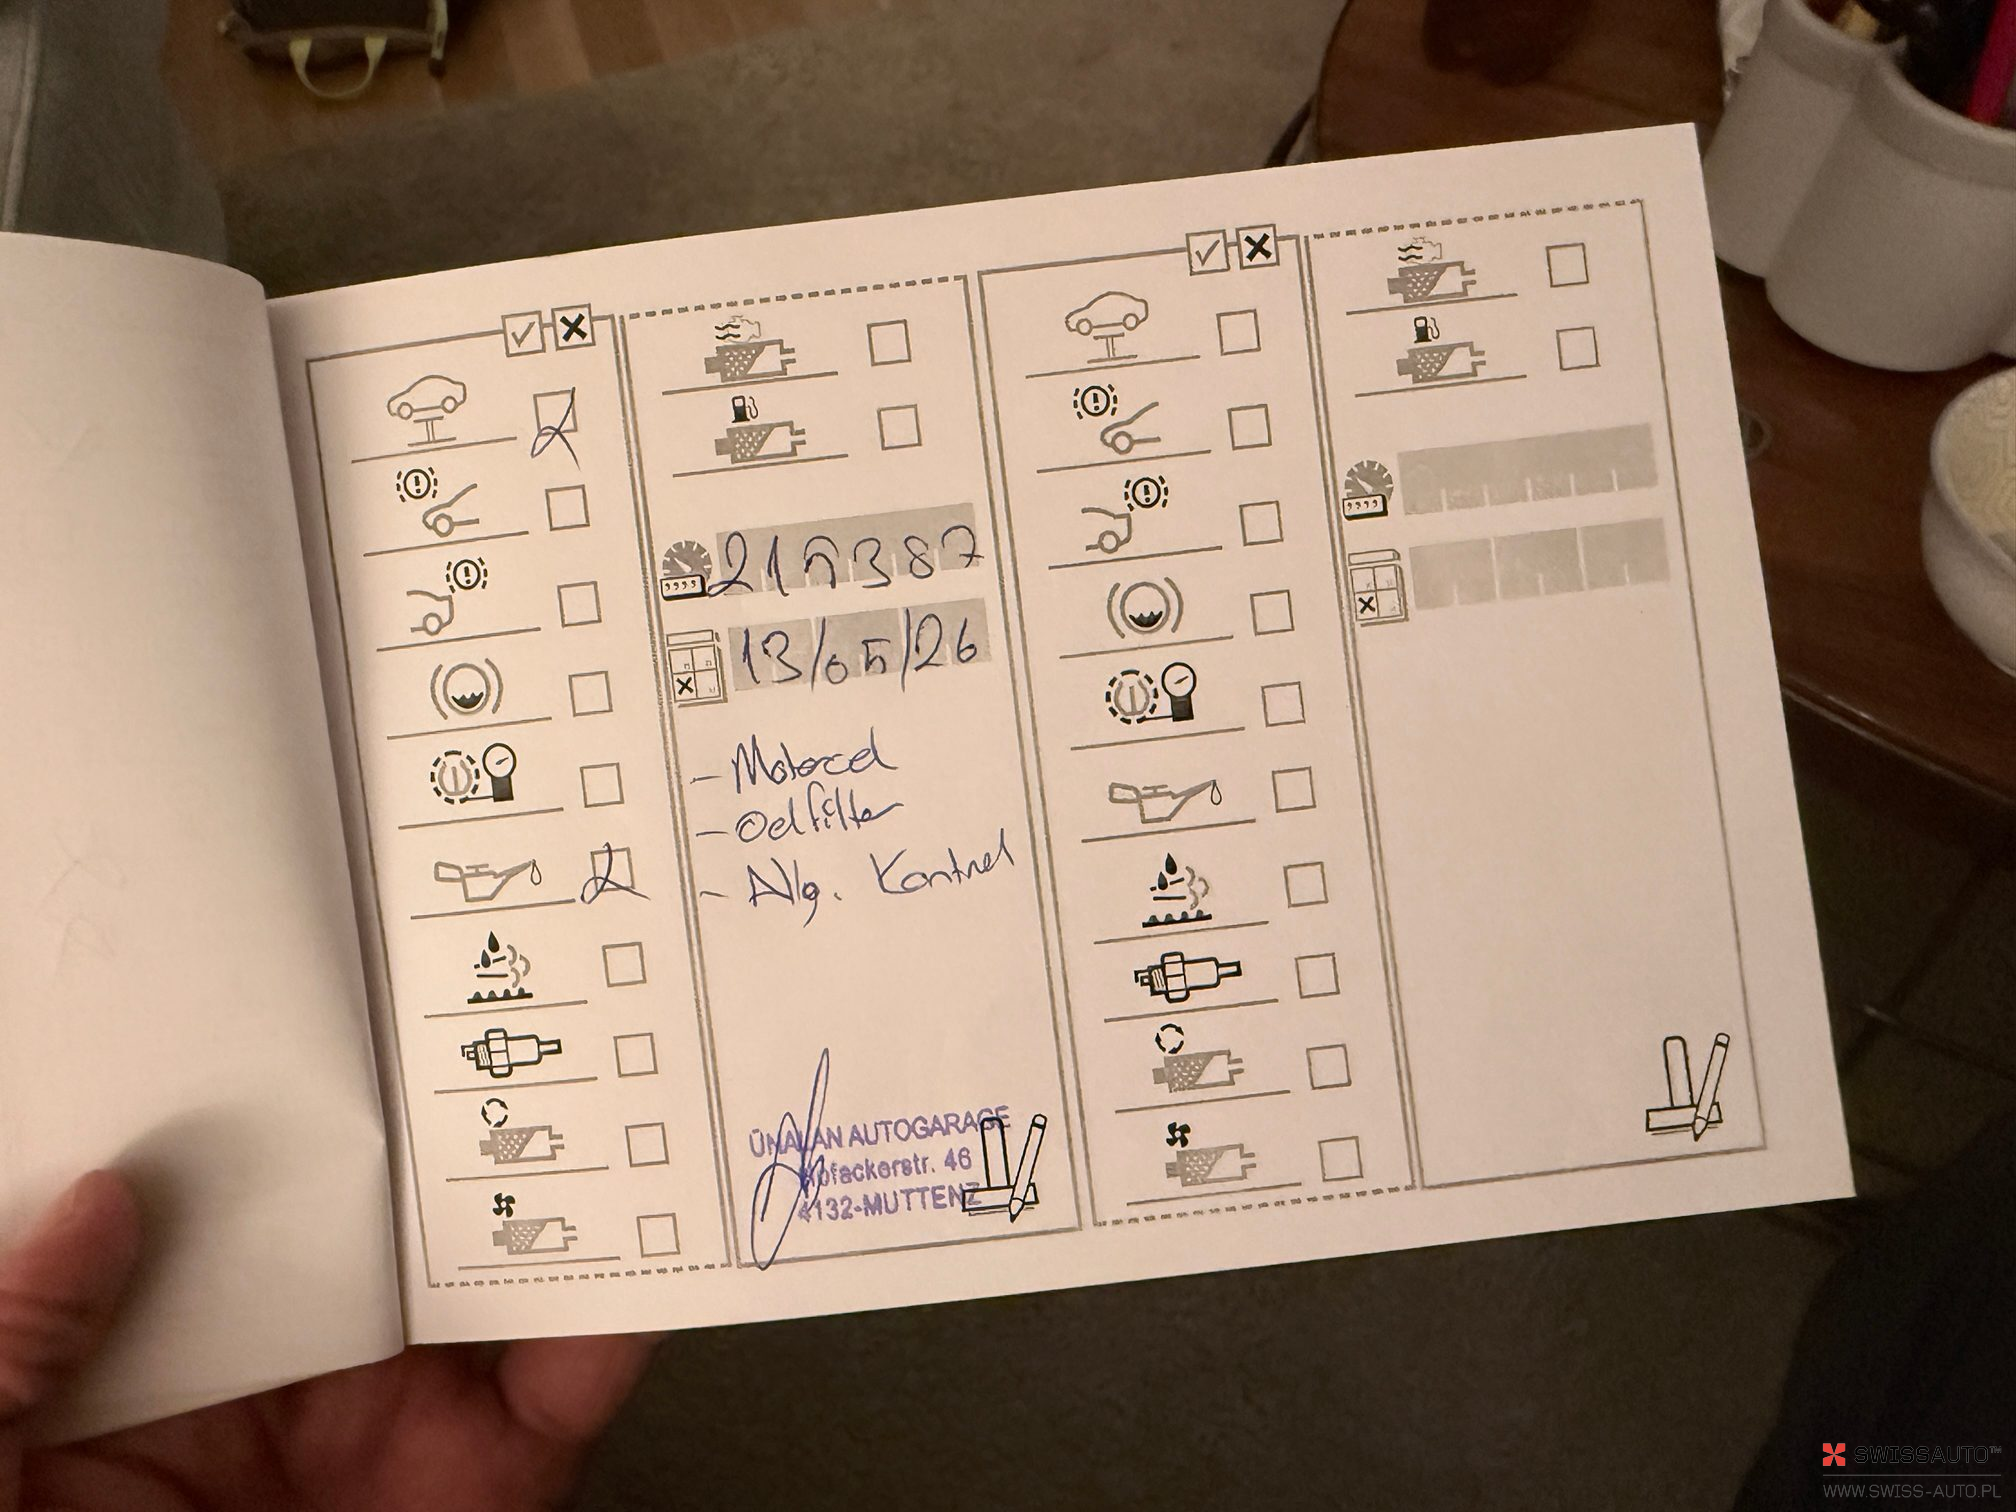 215387
13/05/26
- Motoroel
- Oelfilter
- Allg. Kontrol
ÜNALAN AUTOGARAGE
Hofackerstr. 46
4132-MUTTENZ
SWISSAUTO™
WWW.SWISS-AUTO.PL